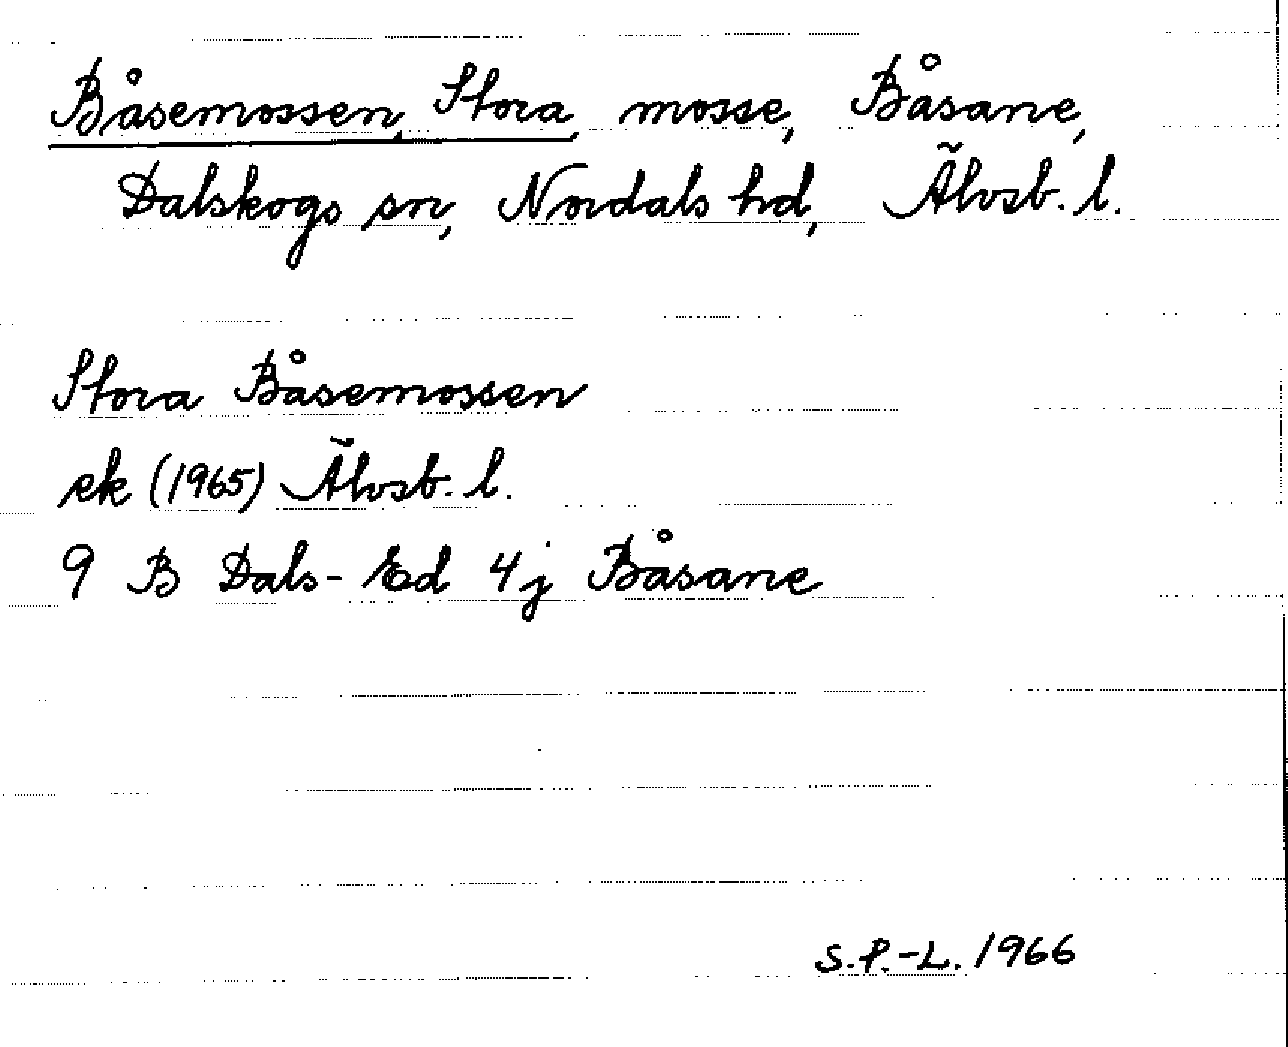 Båsemossen, Stora, mosse, Båsane,
Dalskogs sn, Nordals hd, Älvsb. l.
Stora Båsemossen
ek (1965) Älvsb. l.
9 B Dals-Ed 4j Båsane
S.P.-L. 1966